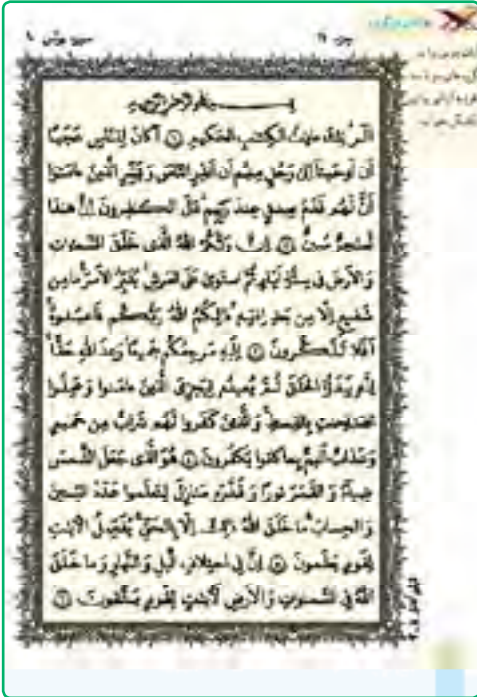 سورهٔ یونس ۱۰
بسم الله الرحمن الرحیم
الٓر تِلكَ ءايٰتُ الكِتٰبِ الحَكيمِ ۝ اَكانَ لِلنّاسِ عَجَبًا
اَن اَوحَينا اِلىٰ رَجُلٍ مِنهُم اَن اَنذِرِ النّاسَ وَ بَشِّرِ الَّذينَ ءامَنوا
اَنَّ لَهُم قَدَمَ صِدقٍ عِندَ رَبِّهِم قالَ الكٰفِرونَ اِنَّ هٰذا
لَسٰحِرٌ مُبينٌ ۝ اِنَّ رَبَّكُمُ اللهُ الَّذى خَلَقَ السَّمٰوٰتِ
وَ الاَرضَ فى سِتَّةِ اَيّامٍ ثُمَّ استَوىٰ عَلَى العَرشِ يُدَبِّرُ الاَمرَ ما مِن
شَفيعٍ اِلّا مِن بَعدِ اِذنِه ذٰلِكُمُ اللهُ رَبُّكُم فَاعبُدوهُ
اَفَلا تَذَكَّرونَ ۝ اِلَيهِ مَرجِعُكُم جَميعًا وَعدَ اللهِ حَقًّا
اِنَّه يَبدَؤُا الخَلقَ ثُمَّ يُعيدُه لِيَجزِىَ الَّذينَ ءامَنوا وَ عَمِلُوا
الصّٰلِحٰتِ بِالقِسطِ وَ الَّذينَ كَفَروا لَهُم شَرابٌ مِن حَميمٍ
وَ عَذابٌ اَليمٌ بِما كانوا يَكفُرونَ ۝ هُوَ الَّذى جَعَلَ الشَّمسَ
ضِياءً وَ القَمَرَ نورًا وَ قَدَّرَه مَنازِلَ لِتَعلَموا عَدَدَ السِّنينَ
وَ الحِسابَ ما خَلَقَ اللهُ ذٰلِكَ اِلّا بِالحَقِّ يُفَصِّلُ الاٰيٰتِ
لِقَومٍ يَعلَمونَ ۝ اِنَّ فِى اختِلافِ الَّيلِ وَ النَّهارِ وَ ما خَلَقَ
اللهُ فِى السَّمٰوٰتِ وَ الاَرضِ لَاٰيٰتٍ لِقَومٍ يَتَّقونَ ۝